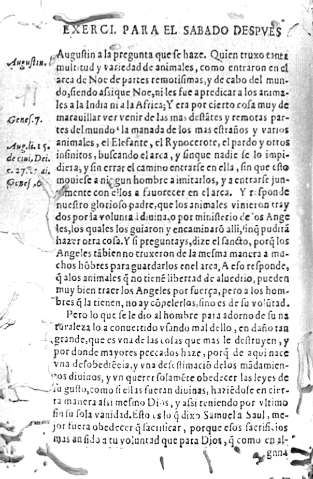 EXERCI. PARA EL SABADO DESPVES
Augustin a la pregunta que se haze. Quien truxo tanta
Augustin.
multitud y variedad de animales, como entraron en el
arca de Noe de partes remotisimas, y de cabo del mun-
do, siendo assi que Noe, ni les fue a predicar a los anima-
les a la India ni a la Africa; Y era por cierto cosa muy de
Genes. 7.
marauillar ver venir de las mas destãtes y remotas par-
tes del mundo la manada de los mas estraños y varios
Aug. li. 15.
animales, el Elefante, el Rynocerote, el pardo y otros
de ciui, Dei.
infinitos, buscando el arca, y sinque nadie se lo impi-
c. 27.
diera, y sin errar el camino entrarse en ella, sin que esto
Genes. 6.
mouiese a nigun hombre a imitarlos, y a entrarse jun-
tamente con ellos a fauorecer en el arca. Y responde
nuestro glorioso padre, que los animales vinieron tray
dos por la voluntã diuina, o por ministerio de los Ange
les, los quales los guiaron y encaminarõ alli, sinq̃ pudiã
hazer otra cosa. Y si preguntays, dize el sancto, porq̃ los
Angeles tãbien no truxeron de la mesma manera a mu-
chos hõbres para guardarlos en el arca, A eso responde,
q̃ a los animales q̃ no tienẽ libertad de aluedrio, pueden
muy bien traer los Angeles por fuerça, pero a los hom-
bres q̃ la tienen, no ay cõpelerlos, sino es de su volũtad.
Pero lo que se le dio al hombre para adorno de su na
turaleza lo a conuertido vsando mal dello, en daño tan
grande, que es vna de las cosas que mas le destruyen, y
por donde mayores peccados haze, porq̃ de aqui nace
vna desobediẽcia, y vna desestimaciõ de los mãdamien-
tos diuinos, y vn querer solamẽte obedecer las leyes de
su gusto, como si ellas fueran diuinas, haziẽdose en cier-
ta manera assi mesmo Dios, y assi teniendo por vltimo
fin su sola vanidad. Esto es lo q̃ dixo Samuel a Saul, me-
jor fuera obedecer q̃ sacrificar, porque esos sacrificios
mas an sido a tu voluntad que para Dios, q̃ como en al-
guna